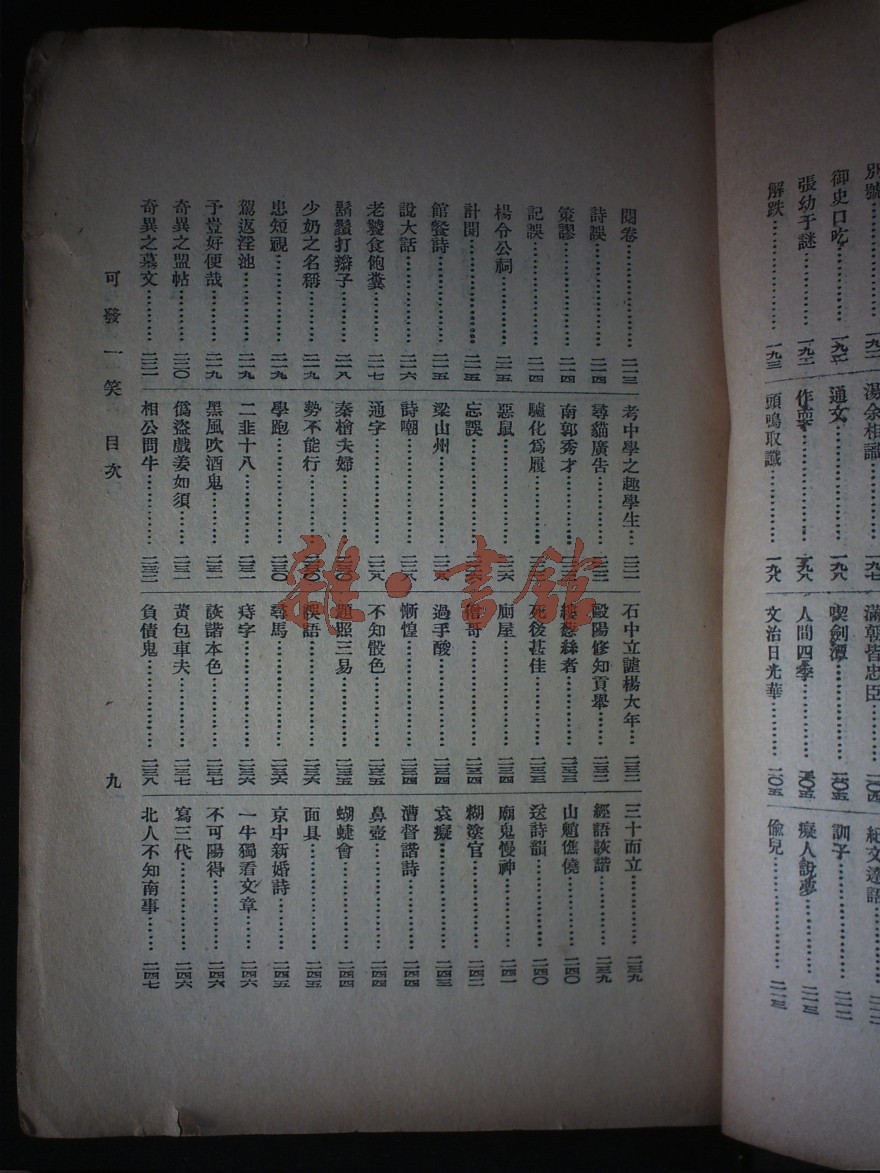 張幼于謎…………一九二
解跌…………一九三
通文…………一九八
頭鳴取讖…………一九八
喫劍潭…………二〇五
人間四季…………二〇五
文治日光華…………二〇五
訓子…………二一二
癡人說夢…………二一三
偷兒…………二一三
閱卷…………二一三
詩誤…………二一四
策謬…………二一四
記誤…………二一四
楊令公祠…………二一五
計閏…………二一五
館餐詩…………二一五
說大話…………二一六
老饕食飽糞…………二一七
鬍鬚打辮子…………二一八
少奶之名稱…………二一九
患短視…………二一九
駕返淫池…………二一九
予豈好便哉…………二一九
奇異之盟帖…………二二〇
奇異之墓文…………二二一
考中學之趣學生…
尋貓廣告
南郭秀才
驢化爲履
惡鼠…………二二六
忘誤
梁山州…………二二八
詩嘲…………二二八
通字…………二二八
秦檜夫婦
勢不能行
學跑
二韭十八…………二三一
黑風吹酒鬼…………二三一
僞盜戲姜如須…………二三一
相公問牛…………二三二
石中立謔楊大年…二三二
歐陽修知貢舉…二三二
死後甚佳…………二三三
廟屋…………二三四
過手酸…………二三四
慚惶…………二三四
不知骰色…………二三五
題照三易…………二三五
誤語…………二三六
尋馬…………二三六
痔字…………二三六
詼諧本色…………二三七
黃包車夫…………二三七
負債鬼…………二三八
三十而立…………二三九
經語詼諧…………二三九
山魈僬僥…………二四〇
送詩韻…………二四〇
廟鬼慢神…………二四一
糊塗官…………二四二
袁癡…………二四三
漕督諧詩…………二四四
鼻壺…………二四四
蝴蜨會…………二四四
面具…………二四五
京中新婚詩…………二四五
一牛獨看文章…………二四六
不可陽得…………二四六
寫三代…………二四六
北人不知南事…………二四七
可發一笑 目次
九
雜·書館